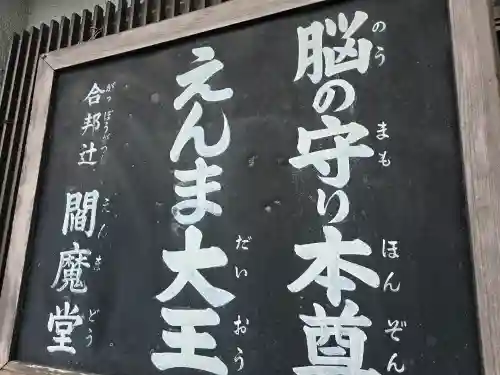 脳の守り本尊
のう まも ほんぞん
えんま大王
だいおう
合邦辻 閻魔堂
がっぽうがつじ えんまどう